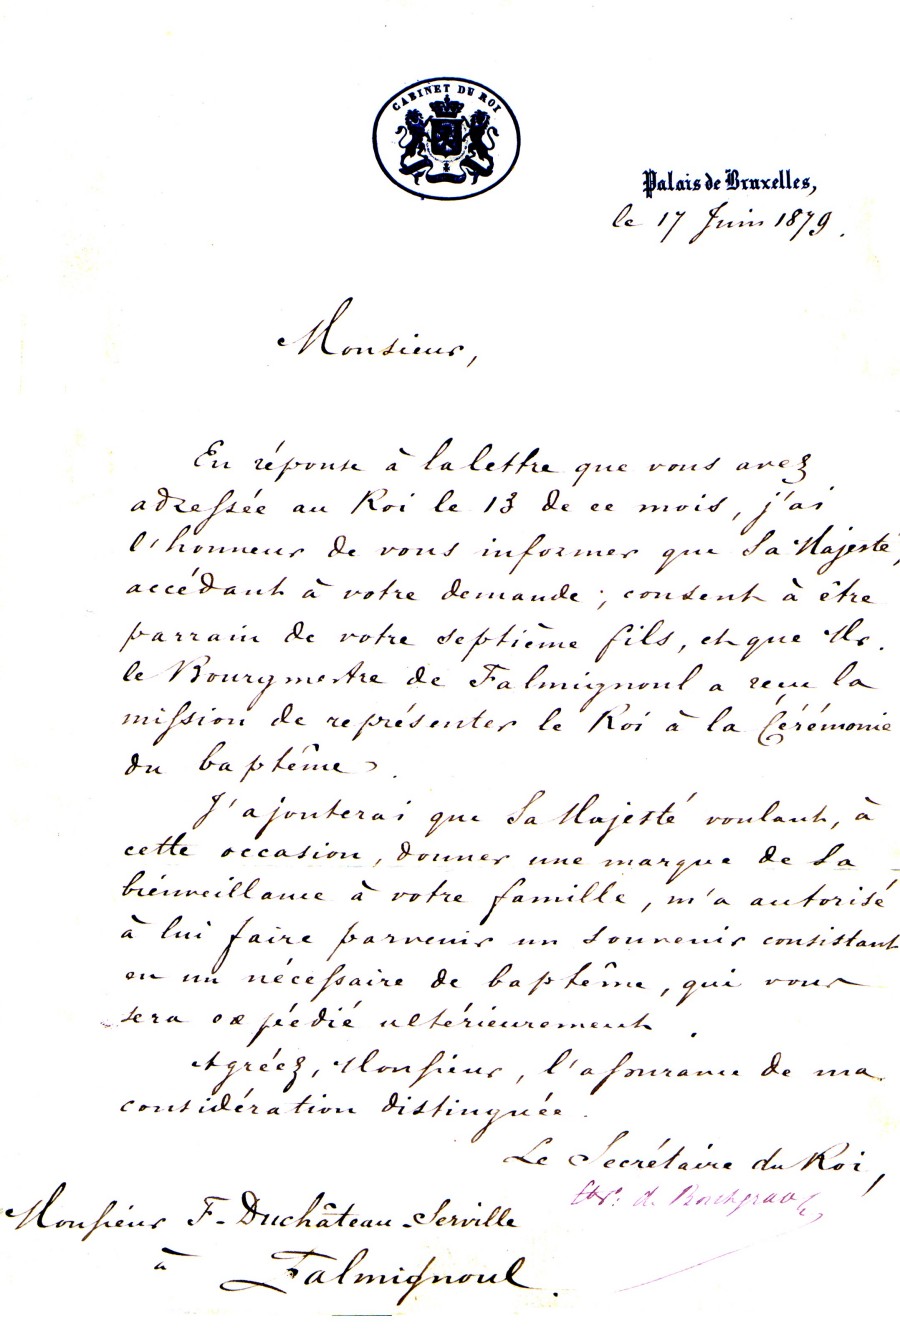 CABINET DU ROI
Palais de Bruxelles,
le 17 Juin 1879.
Monsieur,
En réponse à la lettre que vous avez
adressée au Roi le 13 de ce mois, j'ai
l'honneur de vous informer que Sa Majesté,
accédant à votre demande, consent à être
parrain de votre septième fils, et que Mr.
le Bourgmestre de Falmignoul a reçu la
mission de représenter le Roi à la Cérémonie
du baptême.
J'ajouterai que Sa Majesté voulant, à
cette occasion, donner une marque de Sa
bienveillance à votre famille, m'a autorisé
à lui faire parvenir un souvenir consistant
en un nécessaire de baptême, qui vous
sera expédié ultérieurement.
Agréez, Monsieur, l'assurance de ma
considération distinguée.
Le Secrétaire du Roi,
Monsieur F. Duchâteau-Serville
à
Falmignoul.